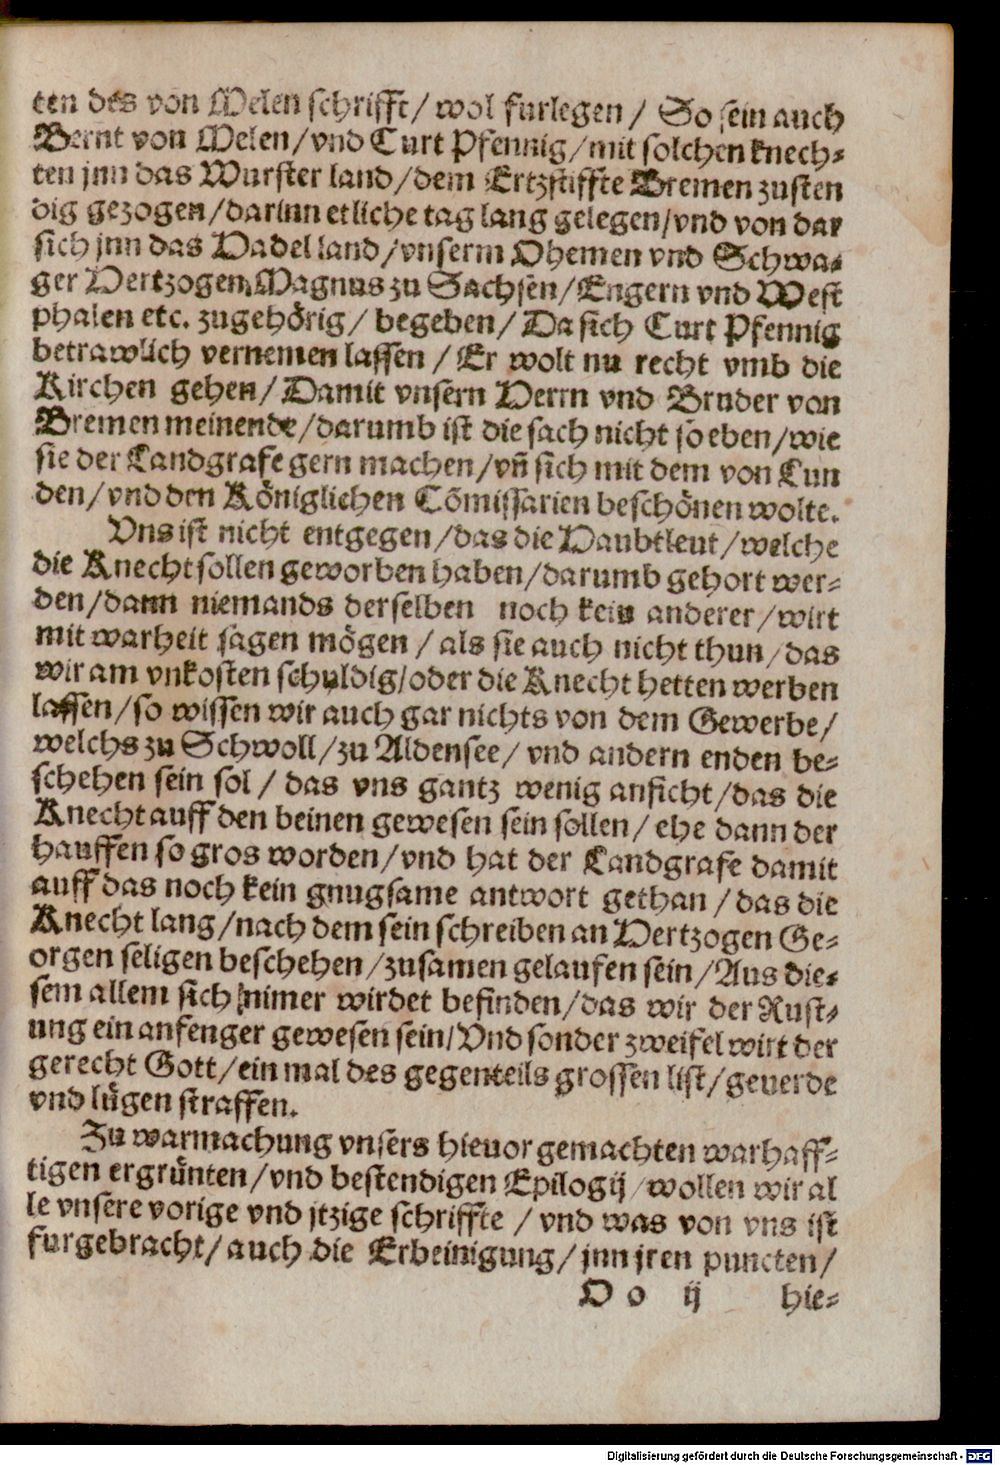 ten des von Melen schrifft/ wol furlegen / So sein auch
Bernt von Melen/ vnd Curt Pfennig/ mit solchen knech⸗
ten jnn das Wurster land/ dem Ertzstiffte Bremen zusten
dig gezogen/ darinn etliche tag lang gelegen/ vnd von dar
sich jnn das Hadel land/ vnserm Ohemen vnd Schwa⸗
ger Hertzogen Magnus zu Sachsen/ Engern vnd West
phalen etc. zugehörig/ begeben/ Da sich Curt Pfennig
betrawlich vernemen lassen / Er wolt nu recht vmb die
Kirchen gehen/ Damit vnsern Herrn vnd Bruder von
Bremen meinende/ darumb ist die sach nicht so eben/ wie
sie der Landgrafe gern machen/ vñ sich mit dem von Lun
den/ vnd den Königlichen Cōmissarien beschönen wolte.
Vns ist nicht entgegen/ das die Haubtleut/ welche
die Knecht sollen geworben haben/ darumb gehort wer⸗
den/ dann niemands derselben noch kein anderer/ wirt
mit warheit sagen mögen / als sie auch nicht thun/ das
wir am vnkosten schuldig/ oder die Knecht hetten werben
lassen/ so wissen wir auch gar nichts von dem Gewerbe/
welchs zu Schwoll/ zu Aldensee/ vnd andern enden be⸗
schehen sein sol / das vns gantz wenig anficht/ das die
Knecht auff den beinen gewesen sein sollen/ ehe dann der
hauffen so gros worden/ vnd hat der Landgrafe damit
auff das noch kein gnugsame antwort gethan / das die
Knecht lang/ nach dem sein schreiben an Hertzogen Ge⸗
orgen seligen beschehen/ zusamen gelaufen sein/ Aus die⸗
sem allem sich nimer wirdet befinden/ das wir der Rust⸗
ung ein anfenger gewesen sein/ Vnd sonder zweifel wirt der
gerecht Gott/ ein mal des gegenteils grossen list/ geuerde
vnd lügen straffen.
Zu warmachung vnsers hieuor gemachten warhaff⸗
tigen ergrünten/ vnd bestendigen Epilogij/ wollen wir al
le vnsere vorige vnd jtzige schriffte / vnd was von vns ist
furgebracht/ auch die Erbeinigung/ jnn jren puncten/
O o ij hie⸗
Digitalisierung gefördert durch die Deutsche Forschungsgemeinschaft - DFG